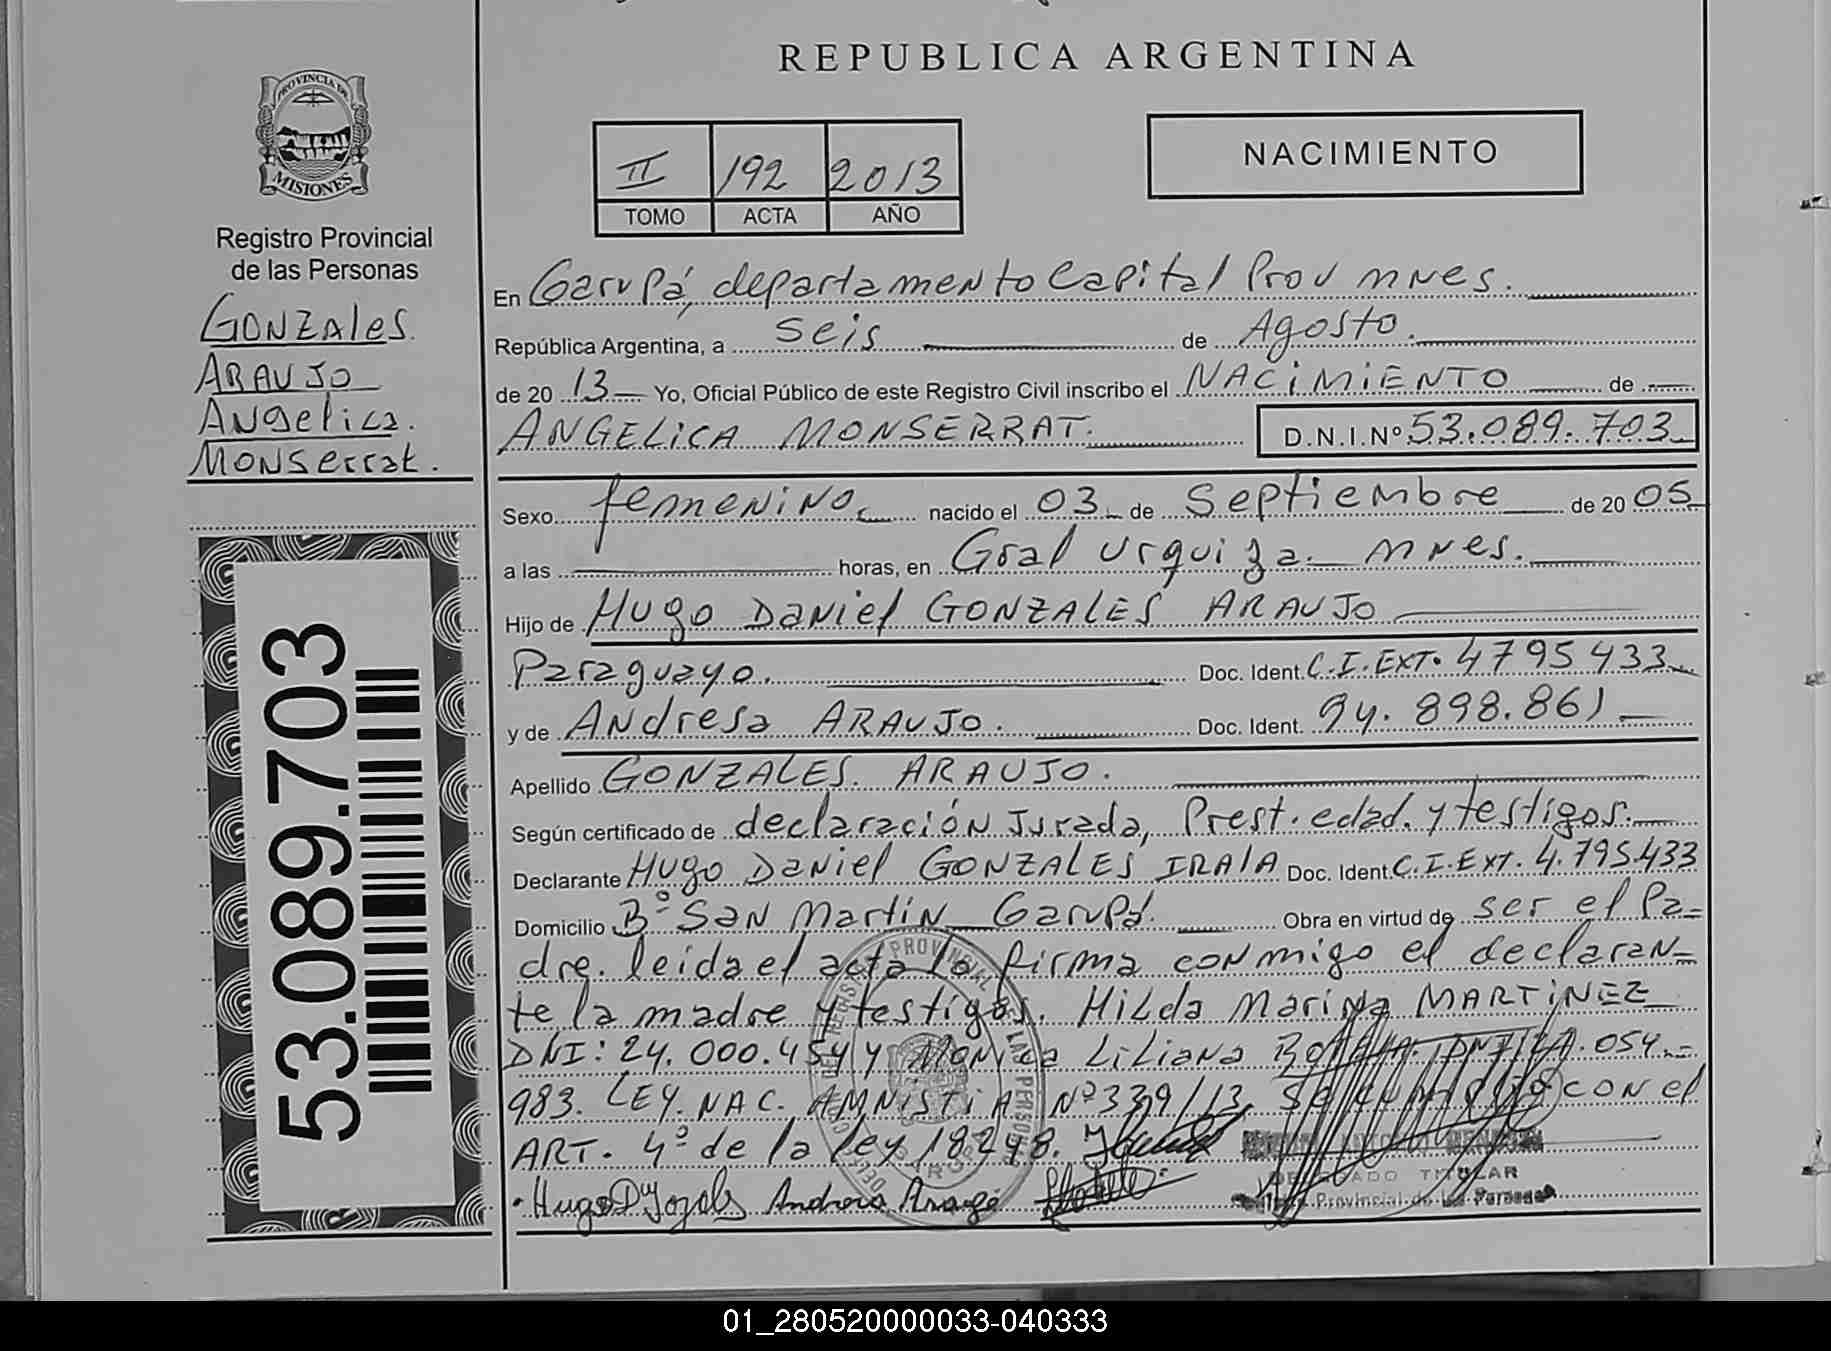 REPUBLICA ARGENTINA
PROVINCIA DE
MISIONES
Registro Provincial
de las Personas
GONZALES
ARAUJO
ANgelica
MONSerrat.
53.089.703
II 192 2013
TOMO ACTA AÑO
NACIMIENTO
En Garupá, departamento Capital Prov mnes.
República Argentina, a seis de Agosto.
de 20 13 Yo, Oficial Público de este Registro Civil inscribo el NACIMIENTO de
ANGELICA MONSERRAT. D.N.I.Nº 53.089.703
Sexo femenino. nacido el 03 de Septiembre de 20 05
a las horas, en Gral Urquiza. mnes.
Hijo de Hugo Daniel GONZALES ARAUJO
Paraguayo. Doc. Ident. C.I.EXT. 4795433
y de Andresa ARAUJO. Doc. Ident. 94.898.861
Apellido GONZALES. ARAUJO.
Según certificado de declaración Jurada, Prest. edad. y testigos.
Declarante Hugo Daniel GONZALES IRALA Doc. Ident. C.I.Ext. 4.795.433
Domicilio Bº San Martin Garupá. Obra en virtud de ser el Pa=
dre. leida el acta la firma conmigo el declaran=
te, la madre y testigos. Hilda Marina MARTINEZ
DNI: 24.000.454 y Monica Liliana 054.=
983. LEY. NAC. AMNISTIA Nº 339/13 con el
ART. 4º de la ley 18248.
Andresa Araujo
TITULAR
Provincial de las Personas
01_280520000033-040333